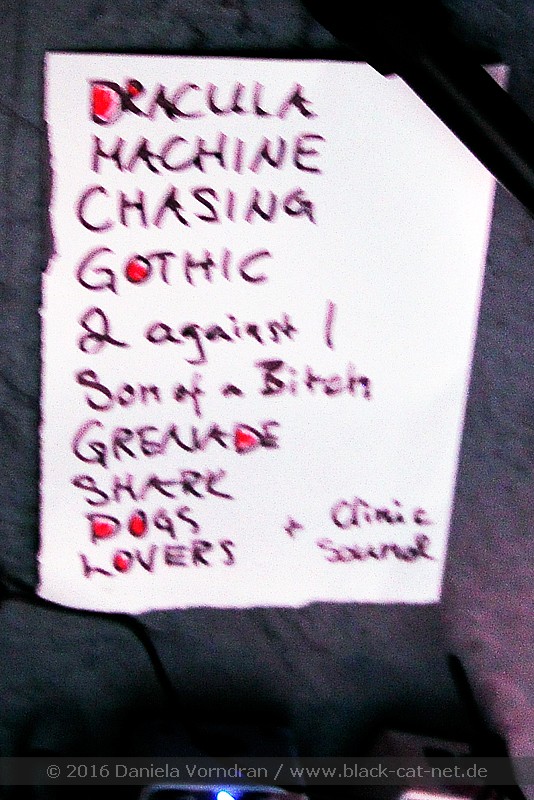 DRACULA
MACHINE
CHASING
GOTHIC
2 against 1
Son of a Bitch
GRENADE
SHARK
DOGS
LOVERS
+ Clinic
Sound
© 2016 Daniela Vorndran / www.black-cat-net.de